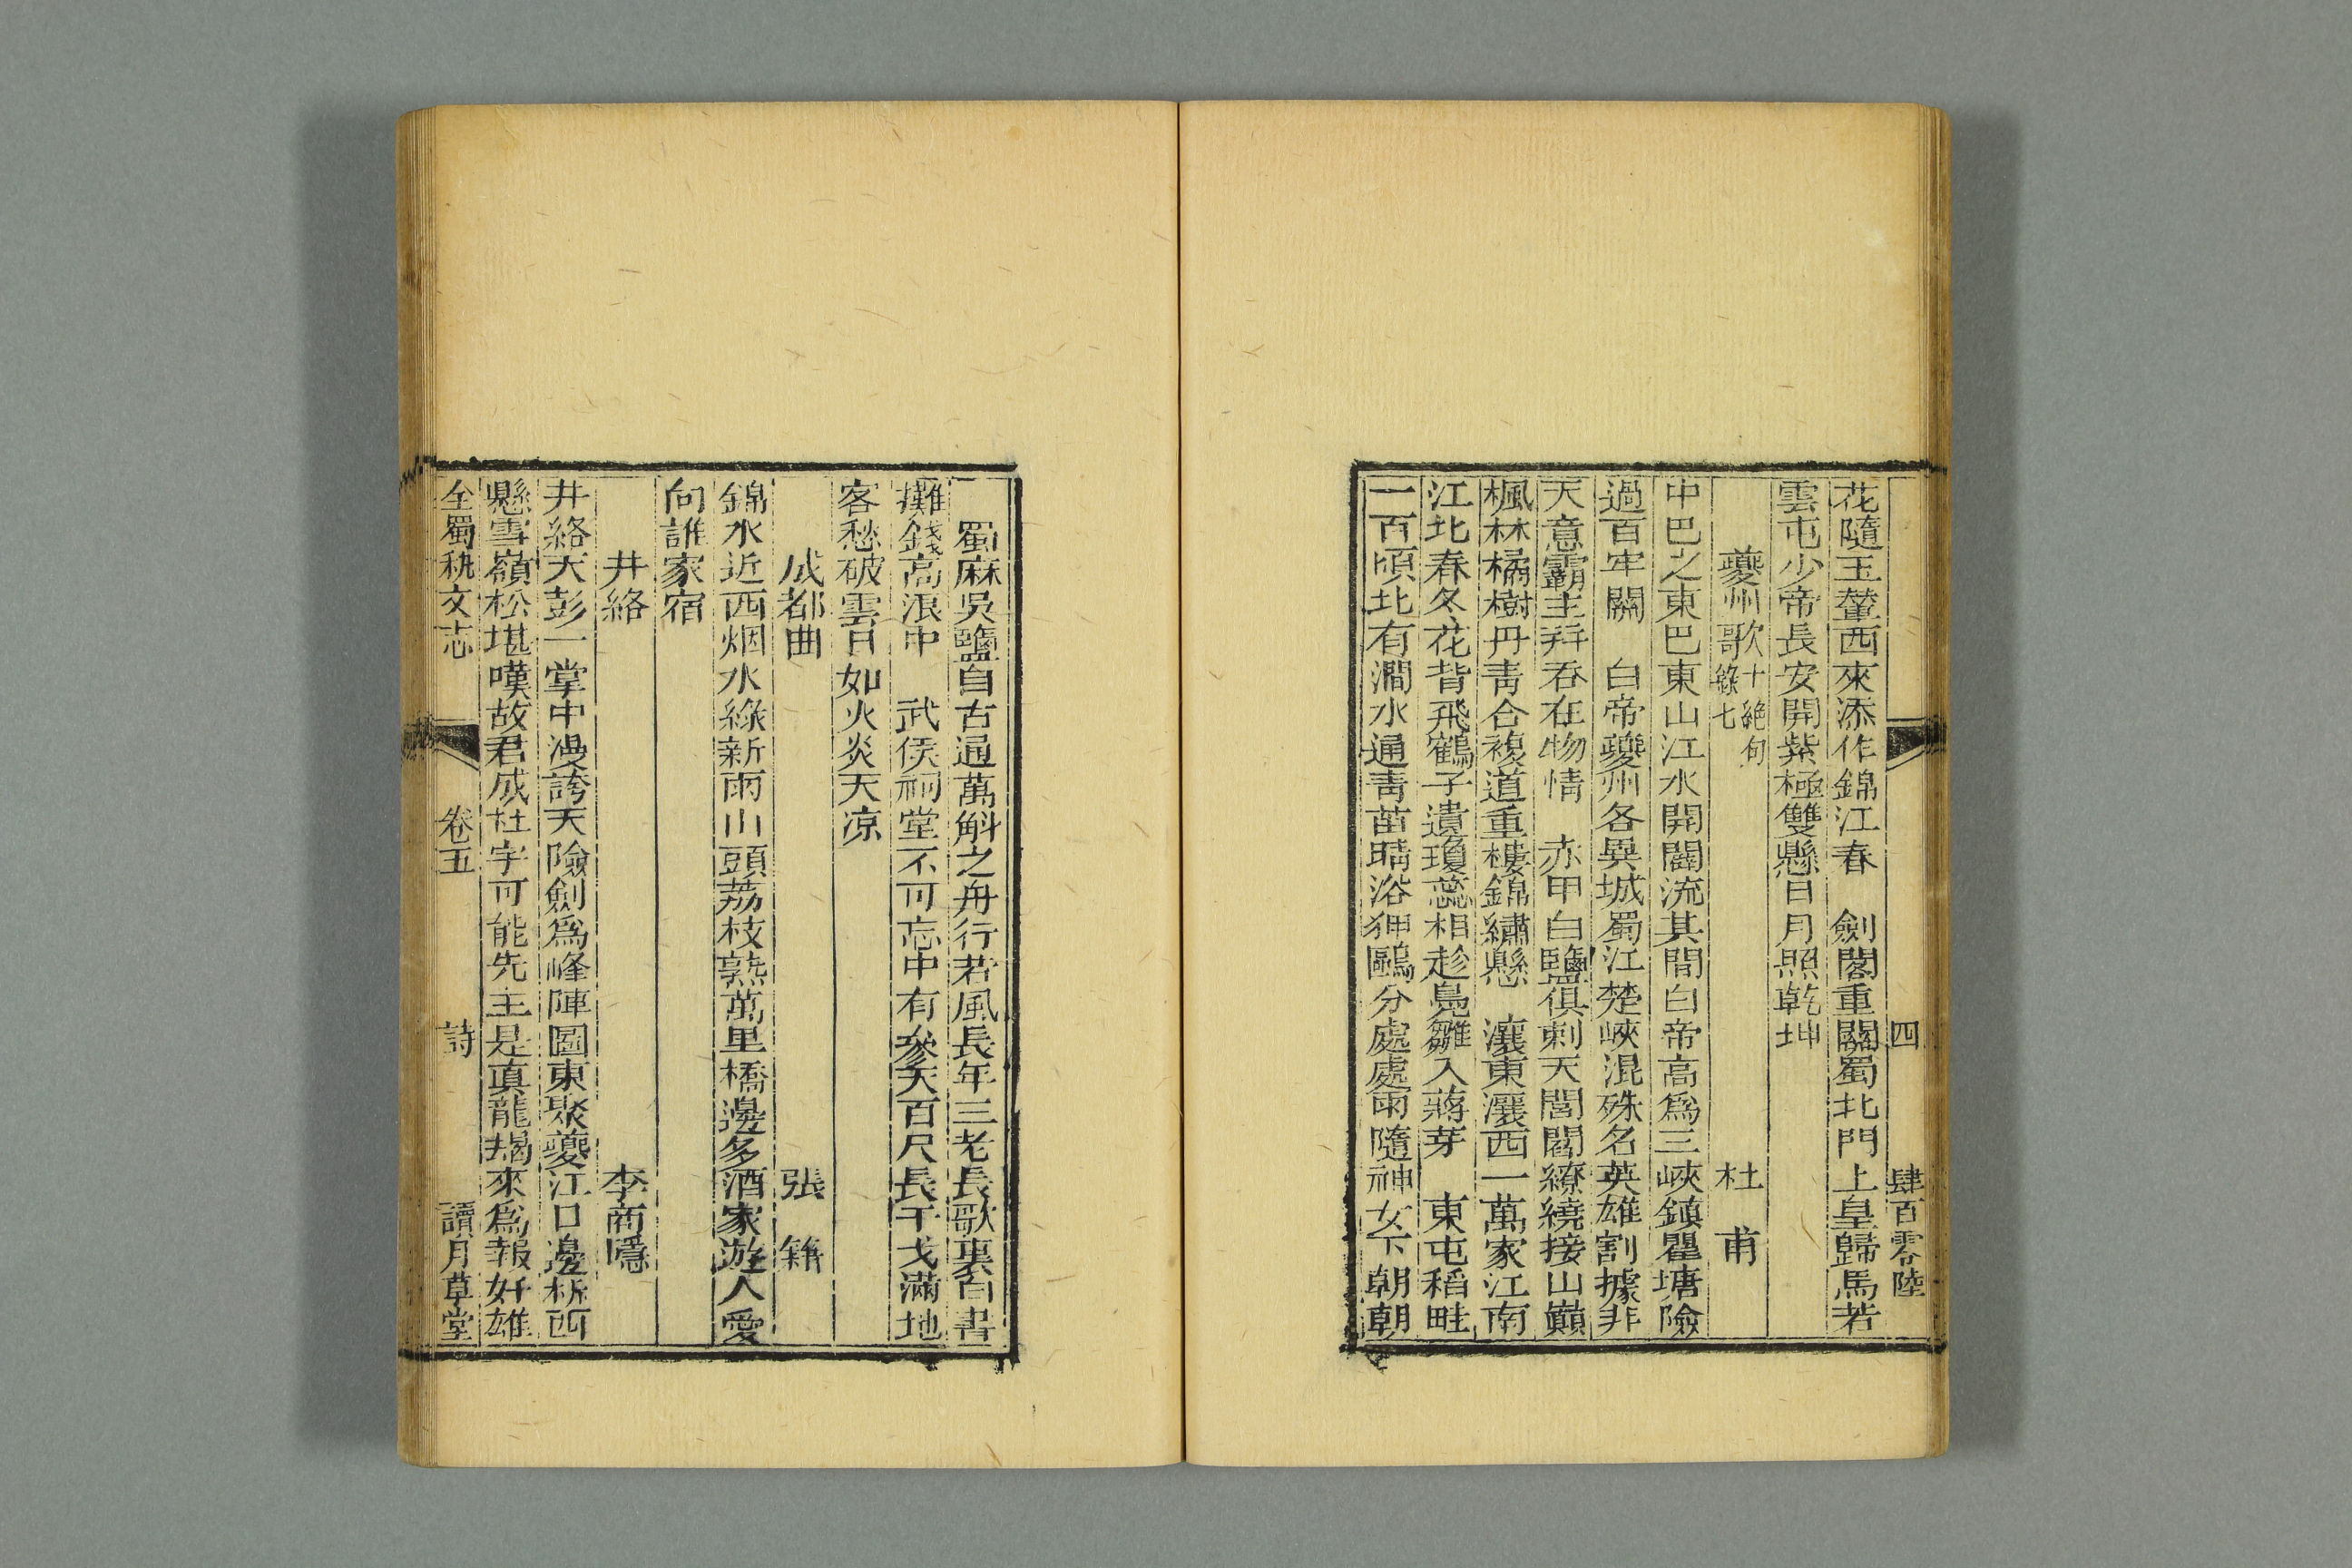 四　肆百零陸
花隨玉輦西來添作錦江春　劍閣重關蜀北門上皇歸馬若
雲屯少帝長安開紫極雙懸日月照乾坤
夔州歌十絶句錄七　杜甫
中巴之東巴東山江水開闢流其間白帝高爲三峽鎮瞿塘險
過百牢關　白帝夔州各異城蜀江楚峽混殊名英雄割據非
天意霸主并吞在物情　赤甲白鹽俱刺天閭閻繚繞接山巔
楓林橘樹丹靑合複道重樓錦繡懸　瀼東瀼西一萬家江南
江北春冬花背飛鶴子遺瓊蕊相趁鳧雛入蔣芽　東屯稻畦
一百頃北有澗水通靑苗晴浴狎鷗分處處雨隨神女下朝朝
蜀麻吳鹽自古通萬斛之舟行若風長年三老長歌裏白晝
攤錢高浪中　武侯祠堂不可忘中有參天百尺長干戈滿地
客愁破雲日如火炎天凉
成都曲　張籍
錦水近西烟水綠新雨山頭荔枝熟萬里橋邊多酒家遊人愛
向誰家宿
井絡　李商隱
井絡天彭一掌中漫誇天險劍爲峰陣圖東聚夔江口邊柝西
懸雪嶺松堪嘆故君成杜宇可能先主是真龍朅來爲報奸雄
全蜀秇文志　卷五　詩　讀月草堂